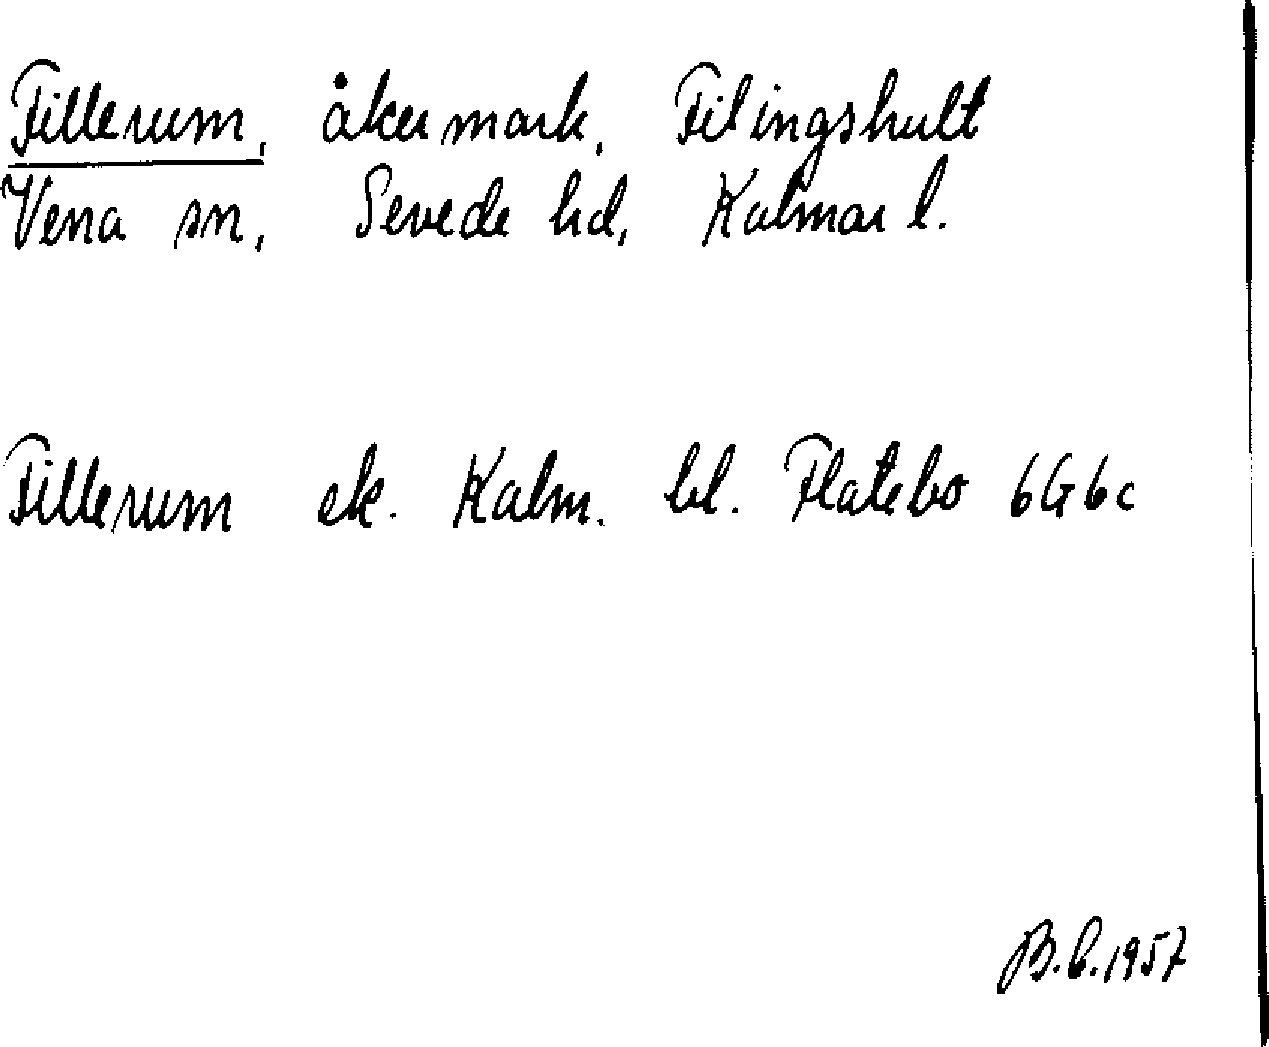 Fillerum, åkermark, Filingshult
Vena sn, Sevede hd, Kalmar l.
Fillerum ek. Kalm. bl. Flatebo 6G6c
B.C. 1957